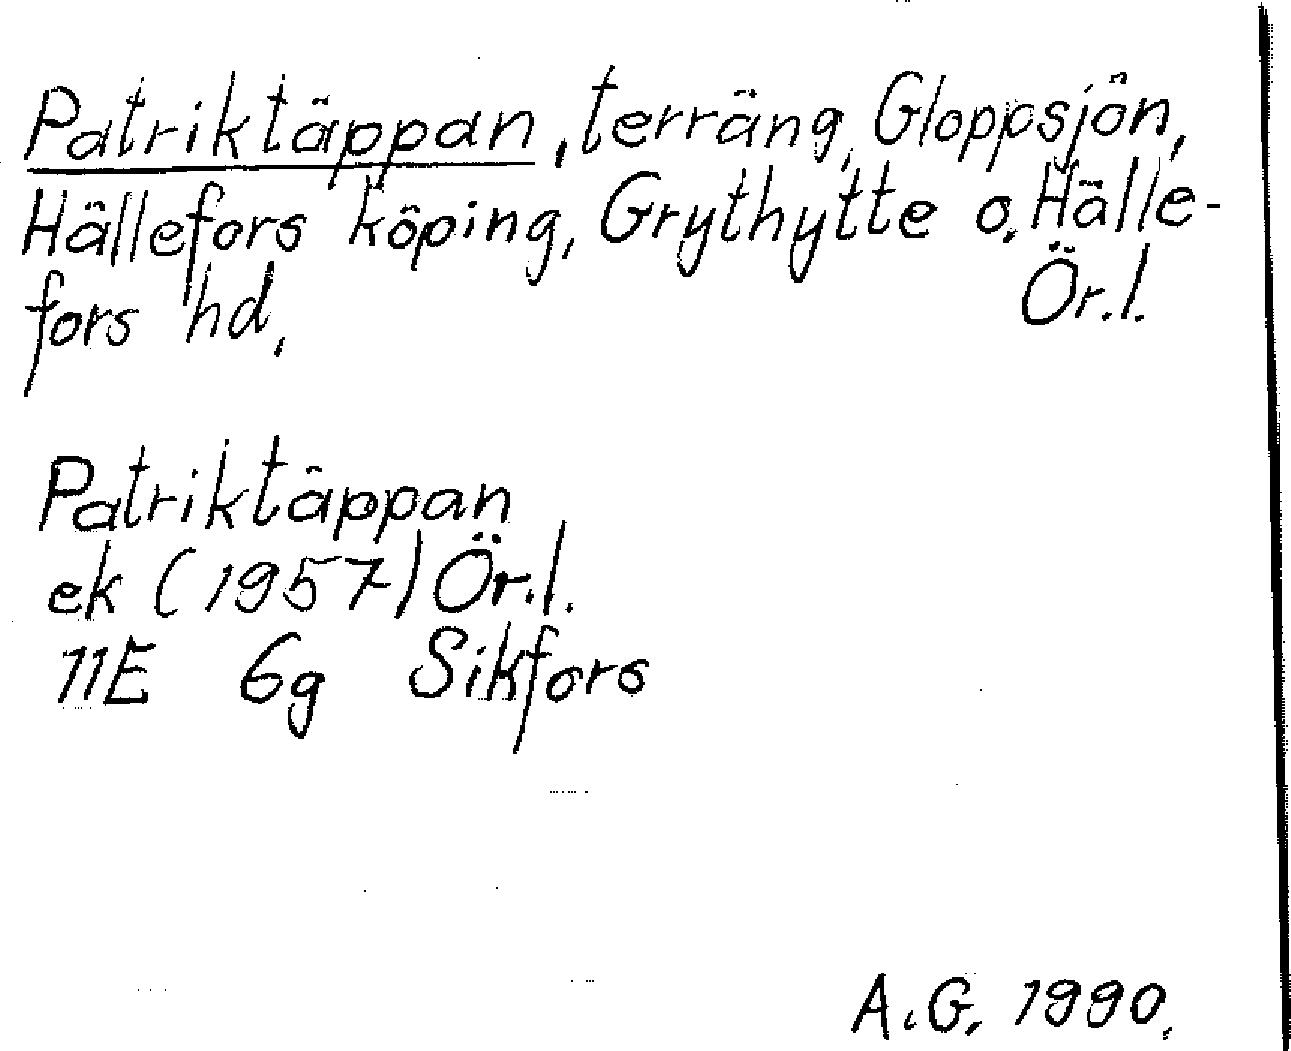 Patriktäppan, terräng, Gloppsjön,
Hällefors köping, Grythytte o. Hälle-
fors hd, Ör.l.
Patriktäppan
ek (1957) Ör.l.
11E 6g Sikfors
A.G. 1990.